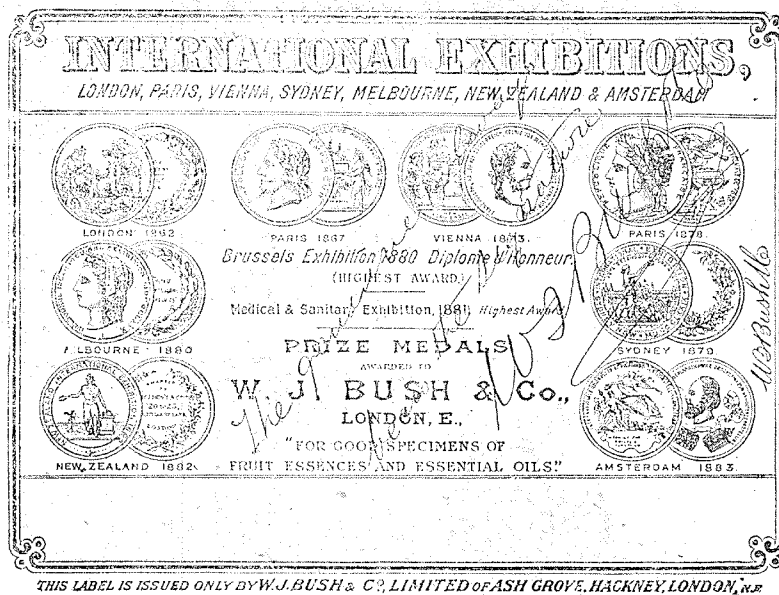 INTERNATIONAL EXHIBITIONS,
LONDON, PARIS, VIENNA, SYDNEY, MELBOURNE, NEW ZEALAND & AMSTERDAM
LONDON 1862
PARIS 1867
VIENNA 1873.
PARIS 1878.
Brussels Exhibition 1880 Diplome d'Honneur.
(HIGHEST AWARD.)
Medical & Sanitary Exhibition, 1881, Highest Award
MELBOURNE 1880
SYDNEY 1879
PRIZE MEDALS
AWARDED TO
W. J. BUSH & Co.,
LONDON, E.,
"FOR GOOD SPECIMENS OF
FRUIT ESSENCES AND ESSENTIAL OILS."
NEW ZEALAND 1882
AMSTERDAM 1883.
The genuine
signature
W J Bush & Co
W J Bush & Co
THIS LABEL IS ISSUED ONLY BY W. J. BUSH & Co, LIMITED OF ASH GROVE, HACKNEY, LONDON, N.E.